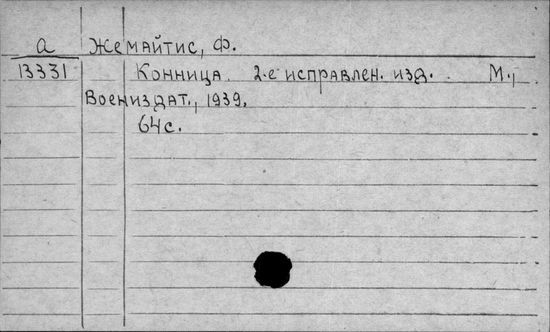 а Жемайтис, Ф.
13331 Конница. 2-е исправлен. изд. М.,
Воениздат., 1939,
64с.